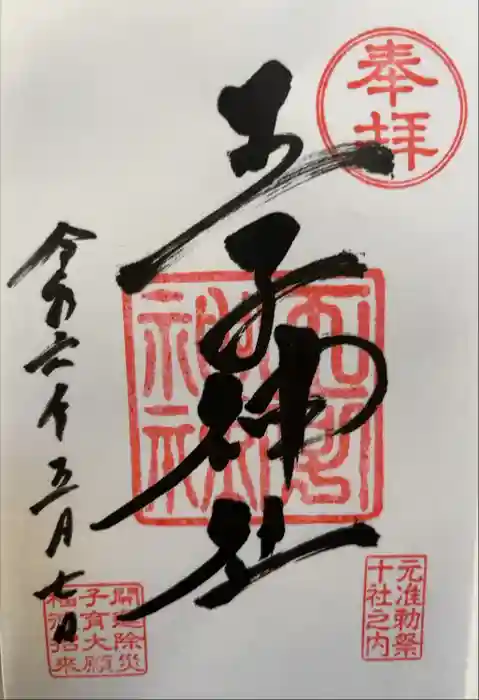 奉拝
王子神社
令和六年五月七日
元准勅祭
十社之内
開運除災
子育大願
福徳招来